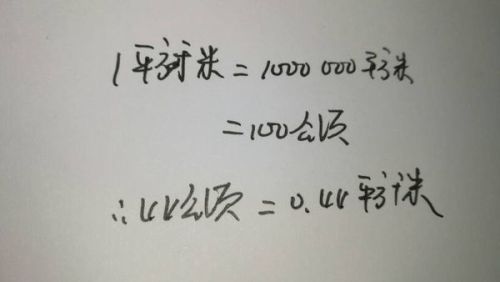 1平方千米=1000 000平方米
=100公顷
∴44公顷=0.44平方千米